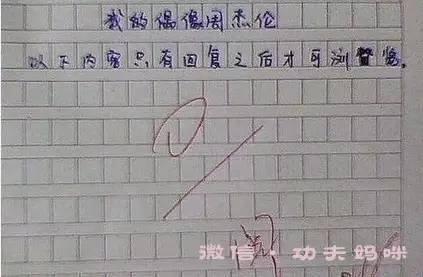 我的偶像周杰伦
以下内容只有回复之后才可浏览。
0
阅
微信 功夫妈咪